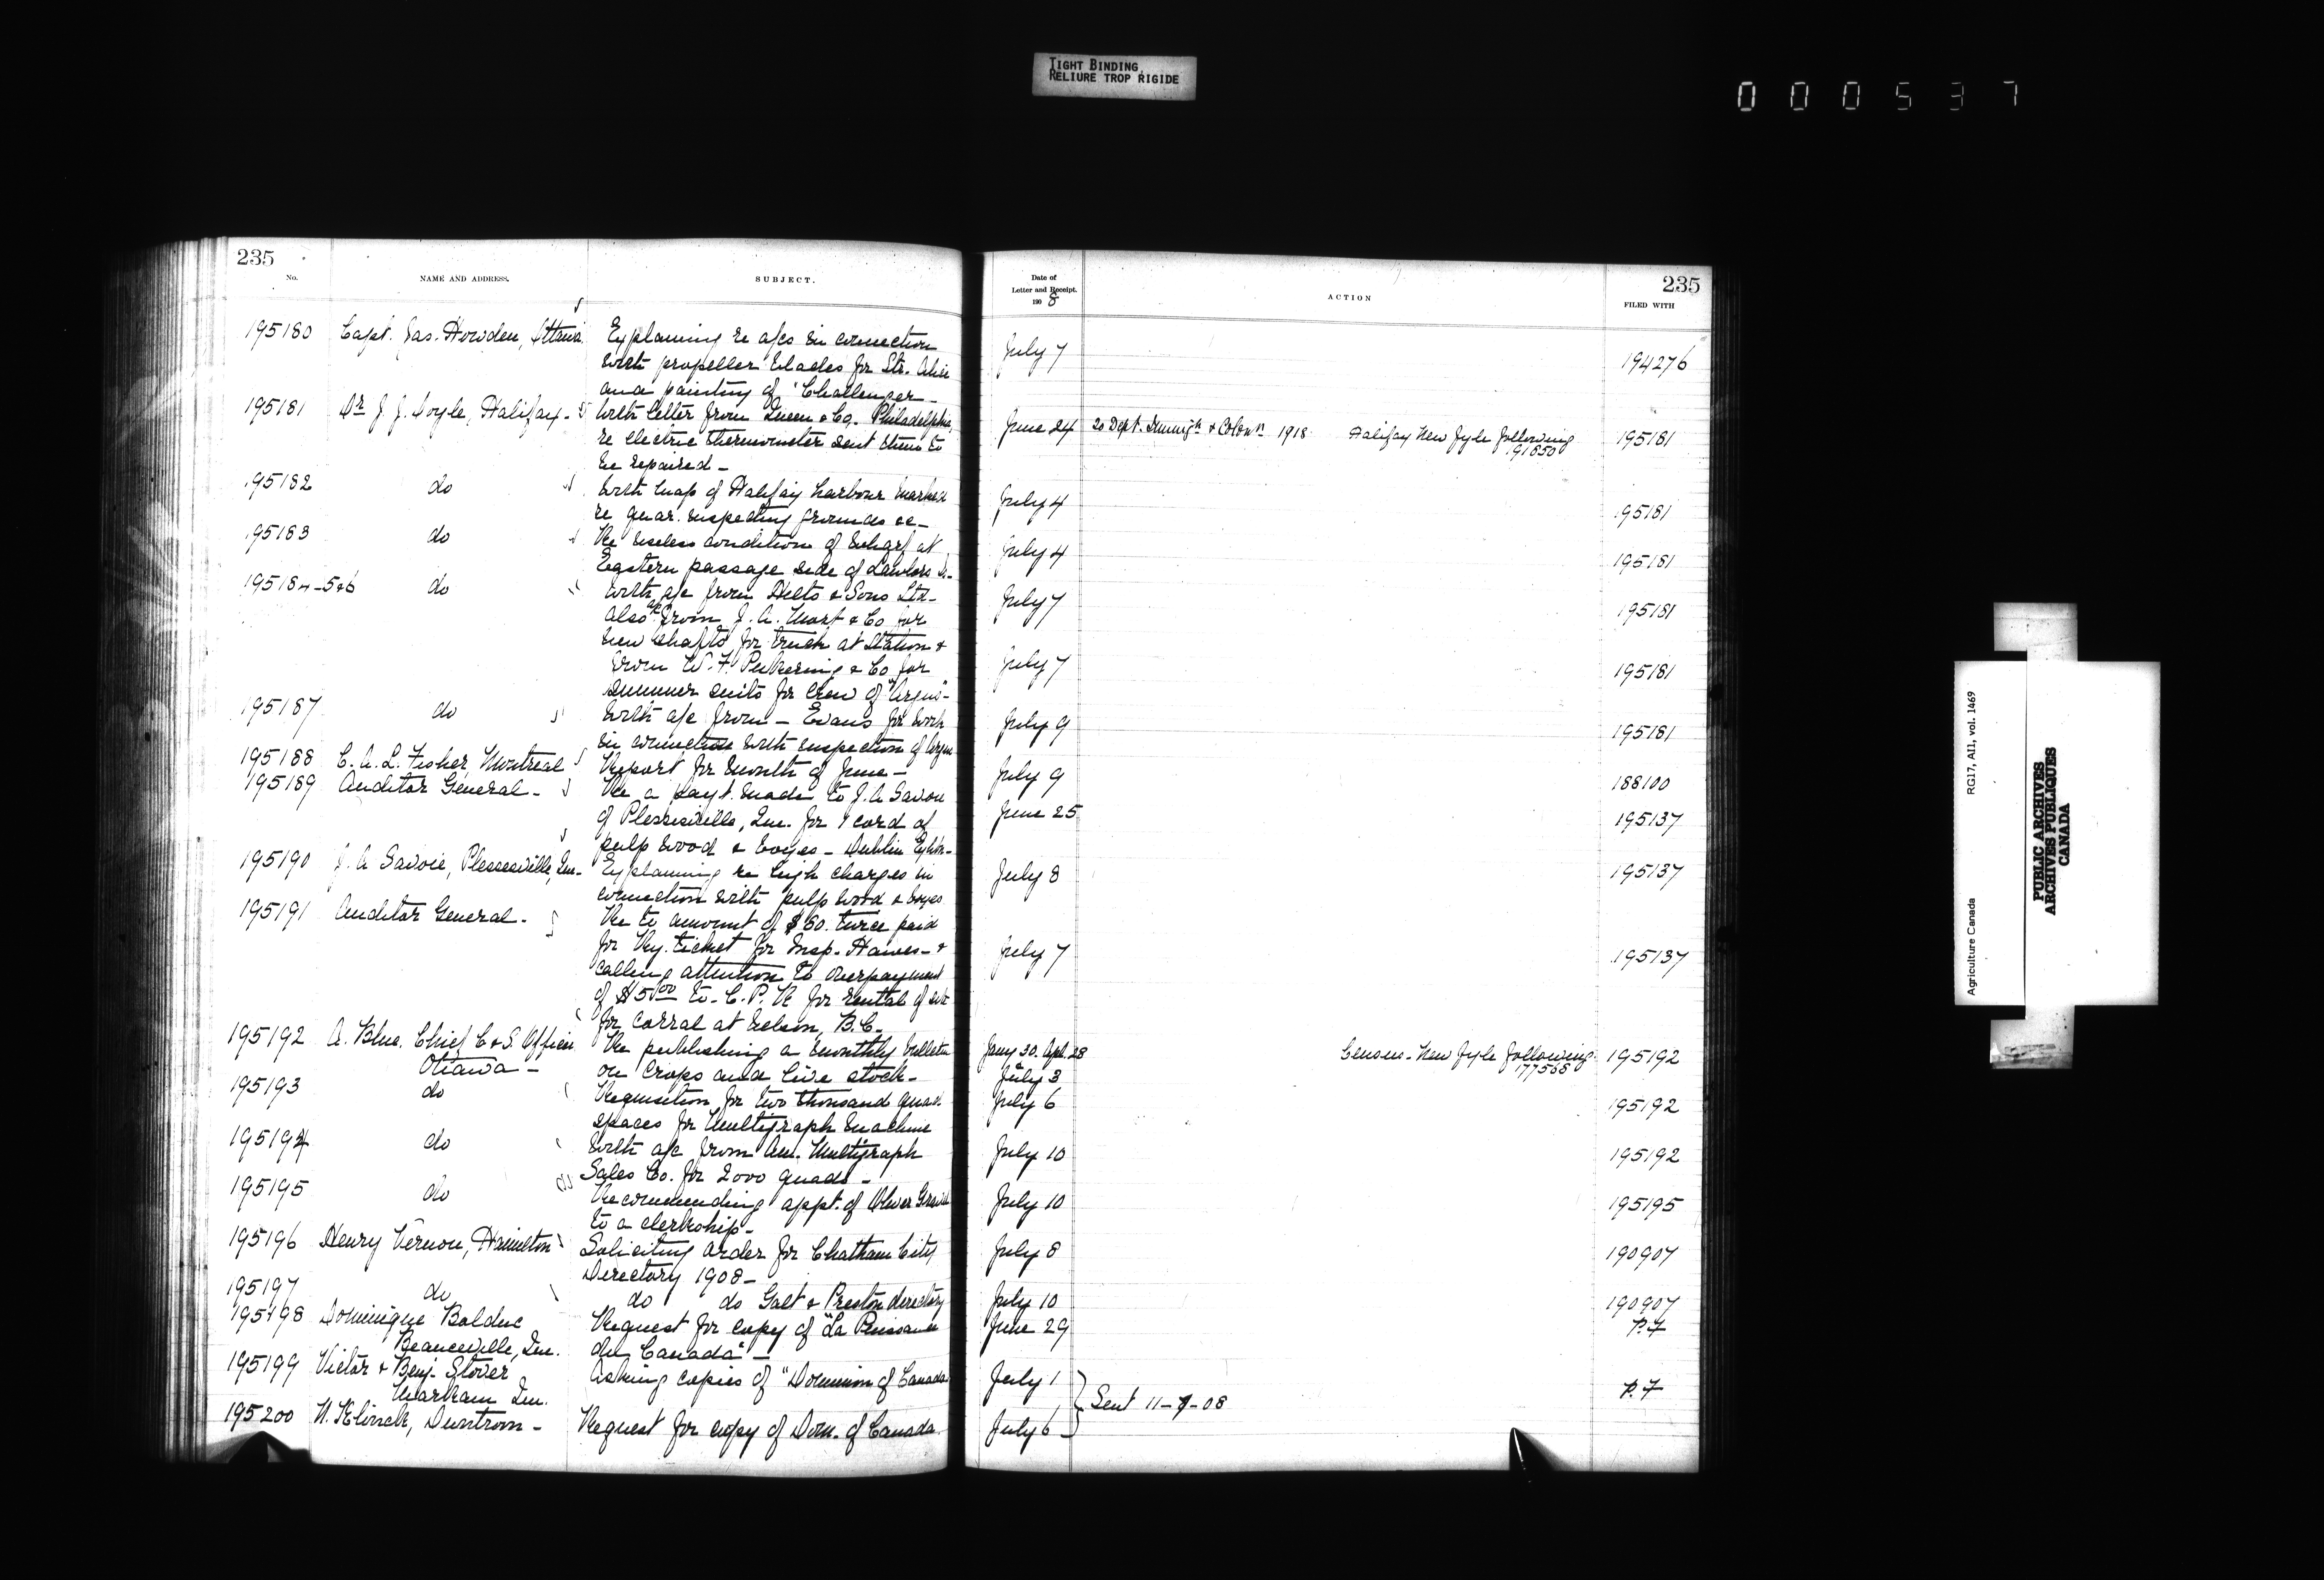 TIGHT BINDING
RELIURE TROP RIGIDE
000537
235
No.
NAME AND ADDRESS.
SUBJECT.
195180 Capt. Jas. Howden, Ottawa Explaining re a/cs in connection
with propeller blades for Str. Alice
and painting of "Challenger"-
195181 Dr J. J. Doyle, Halifax- With letter from Queen & Co. Philadelphia
re electric thermometer sent them to
be repaired-
195182 do With map of Halifax harbour marked
re quar. inspecting grounds &c-
195183 do Re useless condition of wharf at
Eastern passage side of Lawlors Is.-
195184-5&6 do With a/c from & Sons Ltd-
also a/c from J. A. & Co for
new shafts for truck at Station &
from W. F. Pickering & Co for
summer suits for crew of "Argus"-
195187 do With a/c from - Evans for work
in connection with inspection of Argus
195188 C. A. L. Fisher, Montreal Report for month of June-
195189 Auditor General- Re a payt. made to J. A Savoie
of Plessisville, Que. for 1 cord of
pulp wood & boxes - Dublin Exhbn-
195190 J. A Savoie, Plessisville, Que- Explaining re high charges in
connection with pulp wood & boxes
195191 Auditor General- Re to amount of $60. twice paid
for Ry. ticket for Insp. Hawes- &
calling attention to overpayment
of $5.00 to C. P. R for rental of site
for corral at Nelson, B.C.
195192 A. Blue, Chief C & S. Officer Re publishing a monthly bulletin
Ottawa- on crops and live stock-
195193 do Requisition for two thousand quad
spaces for Multigraph machine
195194 do With a/c from Am. Multigraph
Sales Co. for 2000 quads-
195195 do Recommending appt. of Oliver
to a clerkship-
195196 Henry Vernon, Hamilton Soliciting order for Chatham City
Directory 1908-
195197 do do do Galt & Preston directory
195198 Dominique Bolduc Request for copy of "La Puissance
Beauceville, Que. du Canada"-
195199 Victor & Benj. Stover Asking copies of "Dominion of Canada
Que.
195200 Duntroon- Request for copy of Dom. of Canada
235
Date of
Letter and Receipt.
1908
ACTION
FILED WITH
July 7 194276
June 24 20 Dept. Immign & Colonn 1918 Halifax New Fyle following 195181
191850
July 4 195181
July 4 195181
July 7 195181
July 7 195181
July 9 195181
July 9 188100
June 25 195137
July 8 195137
July 7 195137
Jany 30. Apl. 28 Census - New Fyle following 195192
July 3 177568
July 6 195192
July 10 195192
July 10 195195
July 8 190907
July 10 190907
June 29 P.F
July 1 P.F
Sent 11-7-08
July 6
Agriculture Canada RG17, AI1, vol. 1469
PUBLIC ARCHIVES
ARCHIVES PUBLIQUES
CANADA